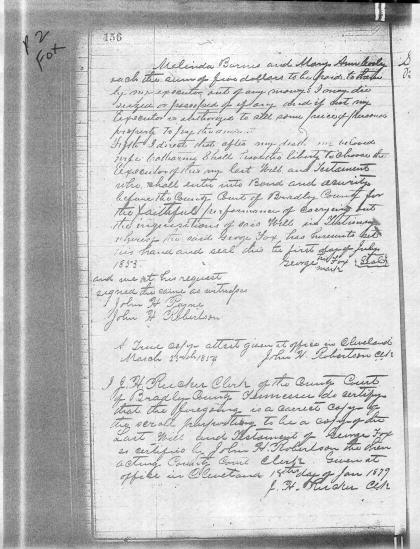 p 2
Fox
456
Melinda Burns and Mary Ann
each the sum of five dollars to be paid to them
by my executor out of any money I may die
seized or possessed of if any and if not my
Executor is authorized to sell some piece of personal
property to pay the same
Fifth I direct that after my death my beloved
wife Catharine Shall have the liberty to choose the
Executor of this my last Will and Testament
who shall enter into Bond and security
before the County Court of Bradley County for
the faithful performance of carrying out
the requisitions of this Will in Testimony
whereof the said George Fox has hereunto set
his hand and seal this the first day of July
1853 George Fox Seal
mark
and we at his request
signed the same as witnesses
John H Payne
John H Robertson
A True copy attest given at office in Cleveland
March 1854 John H Robertson Clk
I J. H. Rucker Clerk of the County Court
of Bradley County Tennessee do certify
that the foregoing is a correct copy of
the scroll purporting to be a copy of the
Last Will and Testament of George Fox
as certified by John H. Robertson the then
acting County Court Clerk Given at
office in Cleveland 18th day of Jan 1879
J. H. Rucker Clk